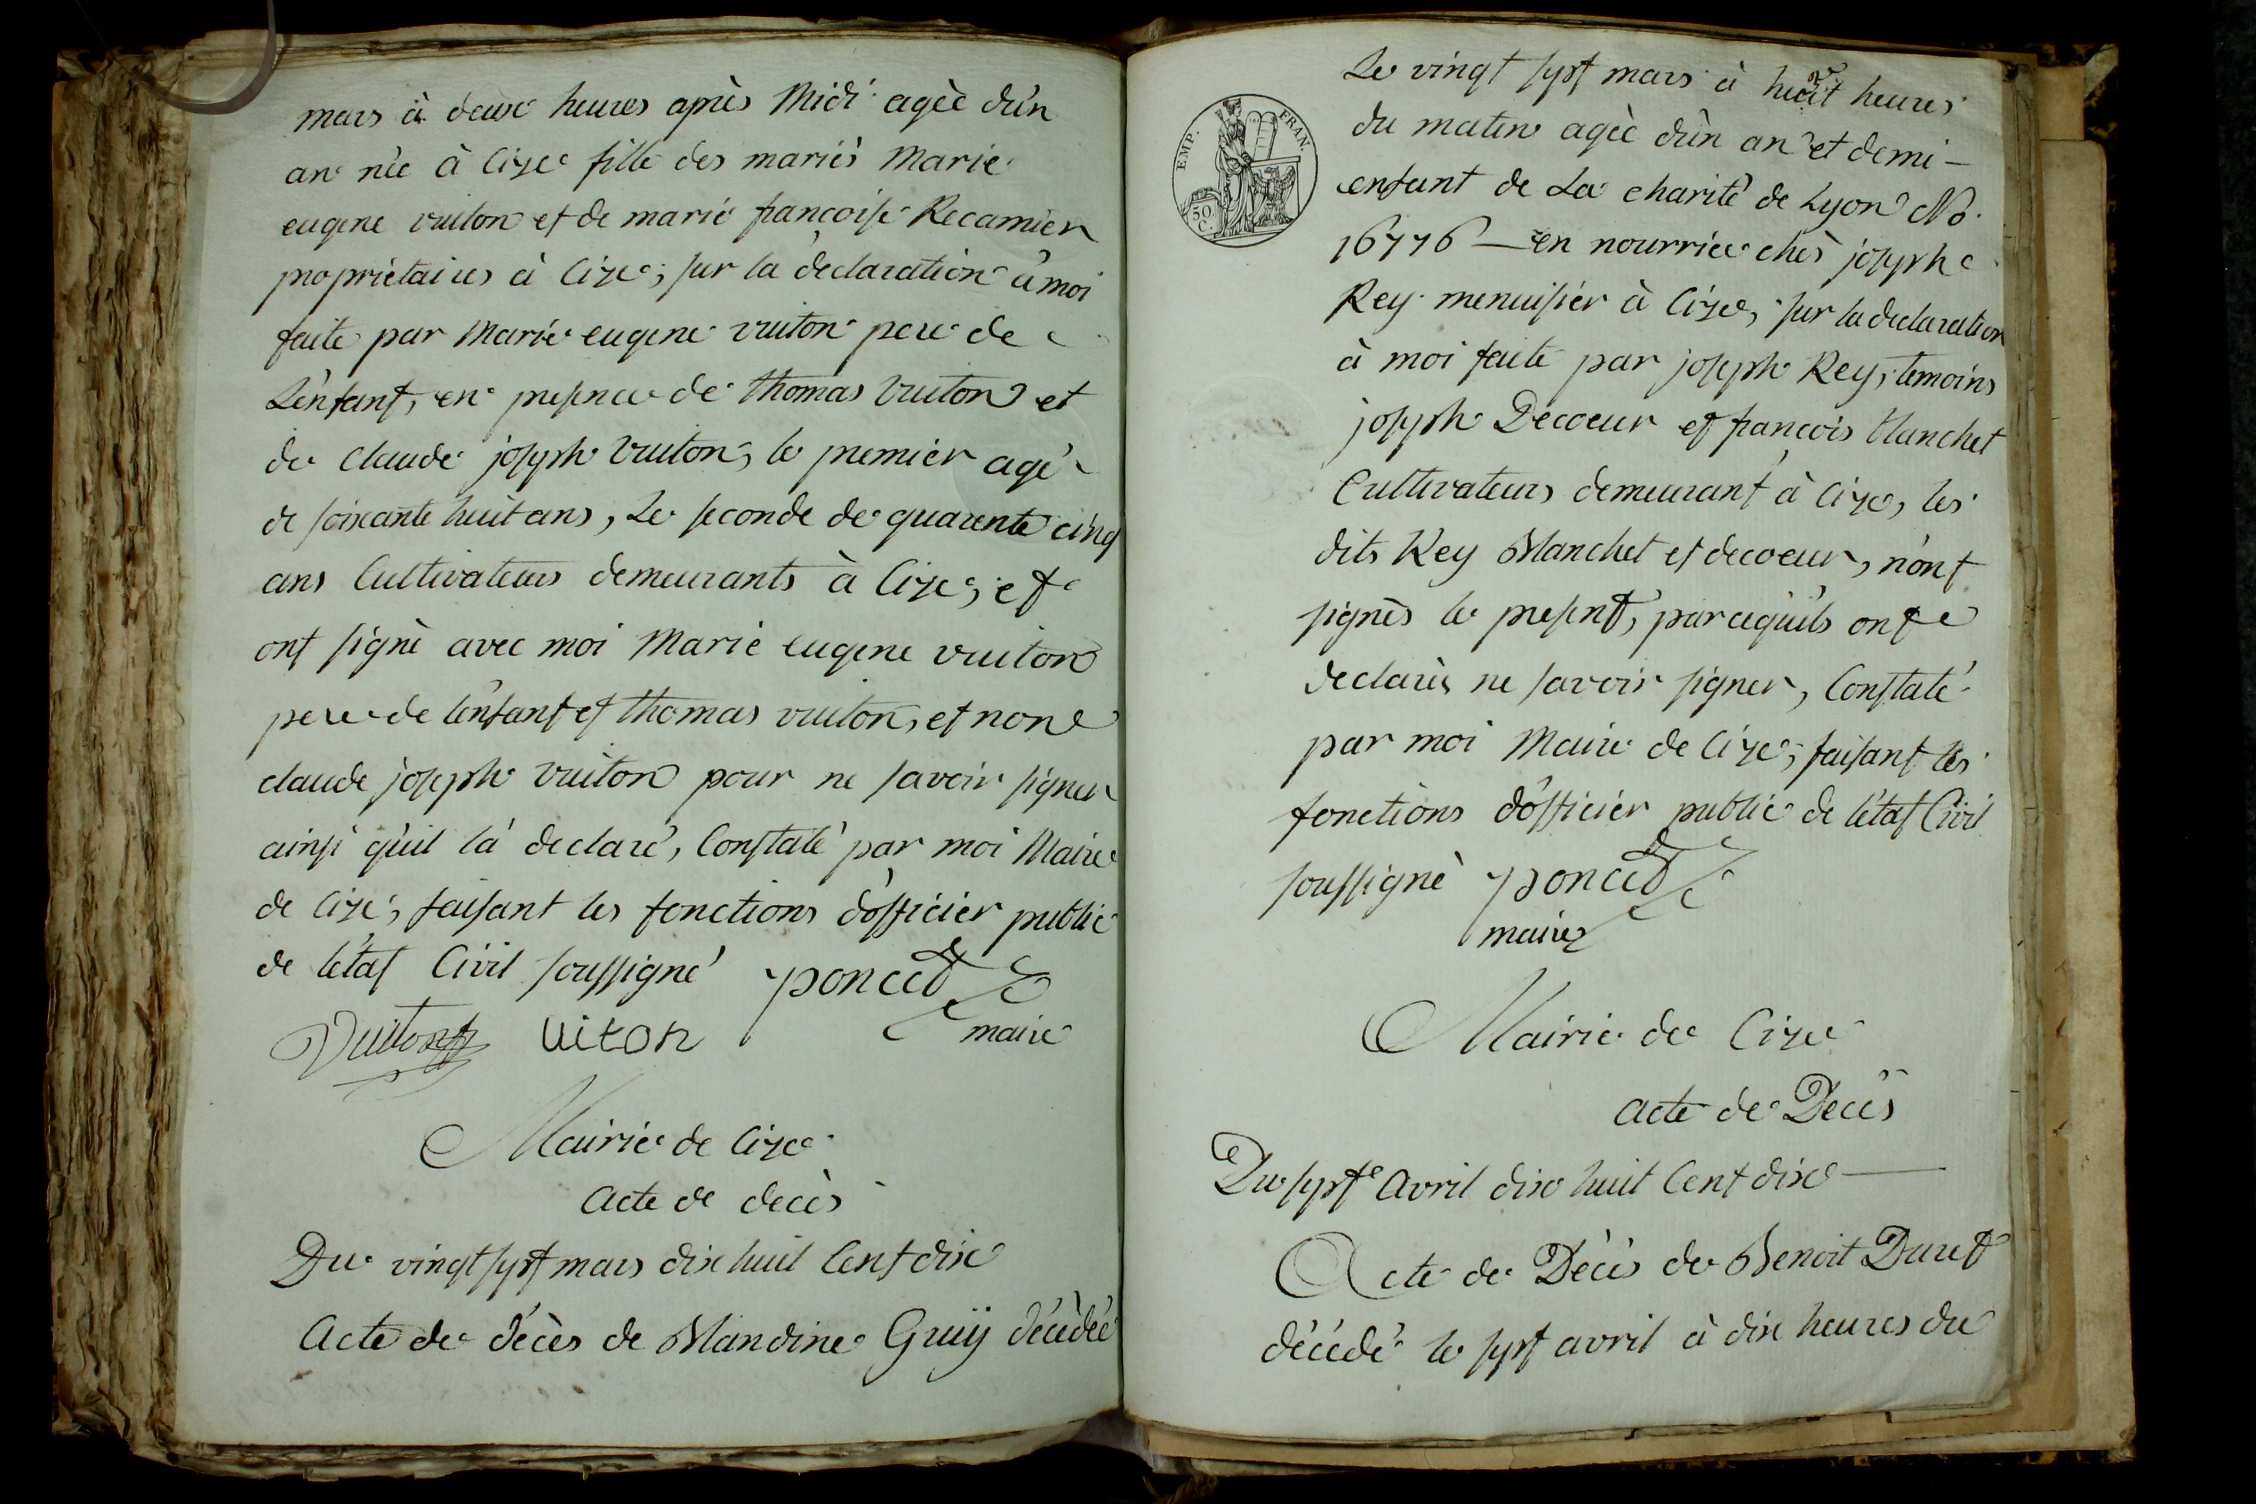 mars à deux heures après Midi agèe d'ùn
an nèe à Cize fille des mariés Marie
eugene vuiton et de marie françoise Recamier
propriètaires à Cize; sur la dèclaration à moi
faite par Marie eugene vuiton pere de
L'enfant, en presence de thomas Vuiton et
de Claude joseph Vuiton, le premier agé
de soixante huit ans, Le seconde de quarente cinq
ans Cultivateurs demeurants à Cize, et
ont signè avec moi Marie eugene vuiton
pere de l'enfant et thomas vuiton, et non
claude joseph Vuiton pour ne savoir signer
ainsi qu'il là declaré, Constaté par moi Maire
de Cize, faisant les fonctions d'officier public
de l'état Civil soussigné poncet
Vuiton uiton maire
Mairie de Cize
Acte de decès
Du vingt sept mars dix huit Cent dix
Acte de décès de Blandine Guÿ décèdée
EMP. FRAN.
50
C.
Le vingt sept mars à huit heures
du matin agèe d'ùn an et demi —
enfant de La charité de Lyon No.
16776 — en nourrice chès joseph
Rey menuisier à Cize, sur la declaration
à moi faite par joseph Rey, temoins
joseph Decoeur et françois blanchet
Cultivateurs demeurant à Cize, les
dits Rey Blanchet et decoeur, n'ont
signès le present, parcequ'ils ont
declarès ne savoir signer, Constaté
par moi Maire de Cize, faisant les
fonctions d'officier public de l'état Civil
soussignè poncet
maire
Mairie de Cize
Acte de Decès
Du sept Avril dix huit Cent dix —
Acte de Dècès de Benoit Duret
décédé le sept avril à dix heures du